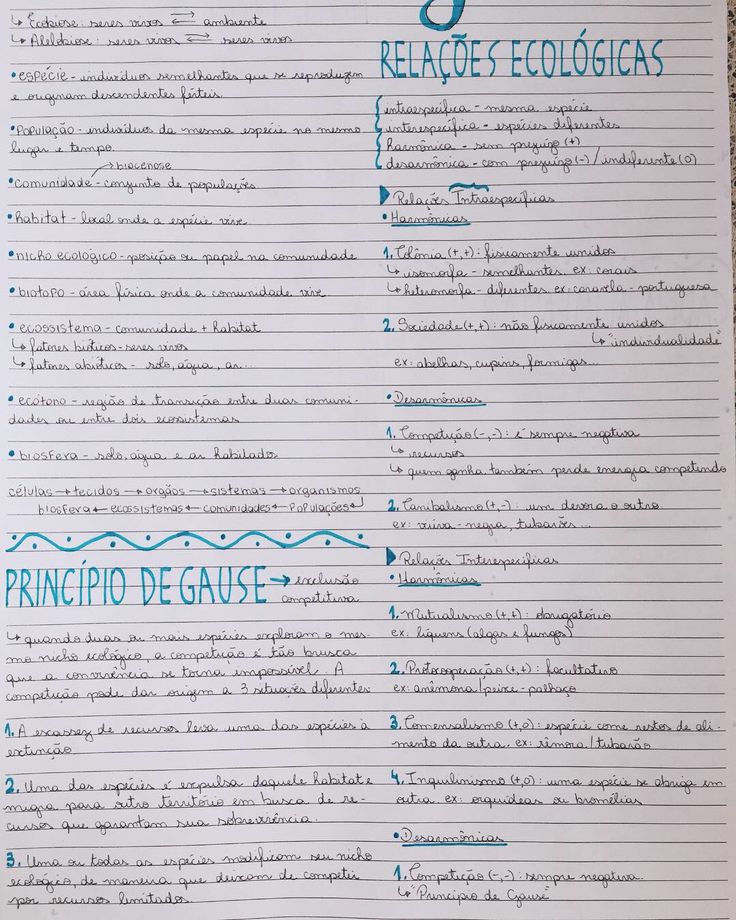 ↳ Ecobiose: seres vivos ⇄ ambiente
↳ Alelobiose: seres vivos ⇄ seres vivos
• espécie - indivíduos semelhantes que se reproduzem
e originam descendentes férteis.
• População - indivíduos da mesma espécie no mesmo
lugar e tempo.
→ biocenose
• comunidade - conjunto de populações
• habitat - local onde a espécie vive
• nicho ecológico - posição ou papel na comunidade
• biotopo - área física onde a comunidade vive
• ecossistema - comunidade + habitat
↳ fatores bióticos - seres vivos
↳ fatores abióticos - solo, água, ar...
• ecótono - região de transição entre duas comuni-
dades ou entre dois ecossistemas
• biosfera - solo, água e ar habitados
células → tecidos → orgãos → sistemas → organismos
biosfera ← ecossistemas ← comunidades ← Populações ↵
PRINCÍPIO DE GAUSE → exclusão
competitiva
↳ quando duas ou mais espécies exploram o mes-
mo nicho ecológico, a competição é tão brusca
que a convivência se torna impossível. A
competição pode dar origem a 3 situações diferentes
1. A escassez de recursos leva uma das espécies à
extinção
2. Uma das espécies é expulsa daquele habitat e
migra para outro território em busca de re-
cursos que garantam sua sobrevivência.
3. Uma ou todas as espécies modificam seu nicho
ecológico, de maneira que deixam de competir
por recursos limitados.
RELAÇÕES ECOLÓGICAS
intraespecífica - mesma espécie
interespecífica - espécies diferentes
harmônica - sem prejuízo (+)
desarmônica - com prejuízo (-) / indiferente (0)
Relações Intraespecíficas
• Harmônicas
1. Colônia (+,+): fisicamente unidos
↳ isomorfa - semelhantes. ex: corais
↳ heteromorfa - diferentes. ex: caravela - portuguesa
2. Sociedade (+,+): não fisicamente unidos
↳ "individualidade"
ex: abelhas, cupins, formigas...
• Desarmônicas
1. Competição (-,-): é sempre negativa
↳ recursos
↳ quem ganha também perde energia competindo
2. Canibalismo (+,-): um devora o outro
ex: viúva - negra, tubarões...
Relações Interespecíficas
• Harmônicas
1. Mutualismo (+,+): obrigatório
ex: líquens (algas e fungos)
2. Protocooperação (+,+): facultativo
ex: anêmona / peixe - palhaço
3. Comensalismo (+,0): espécie come restos de ali-
mento da outra. ex: rêmora / tubarão
4. Inquilinismo (+,0): uma espécie se abriga em
outra. ex: orquídeas ou bromélias
• Desarmônicas
1. Competição (-,-): sempre negativa.
↳ "Princípio de Gause"